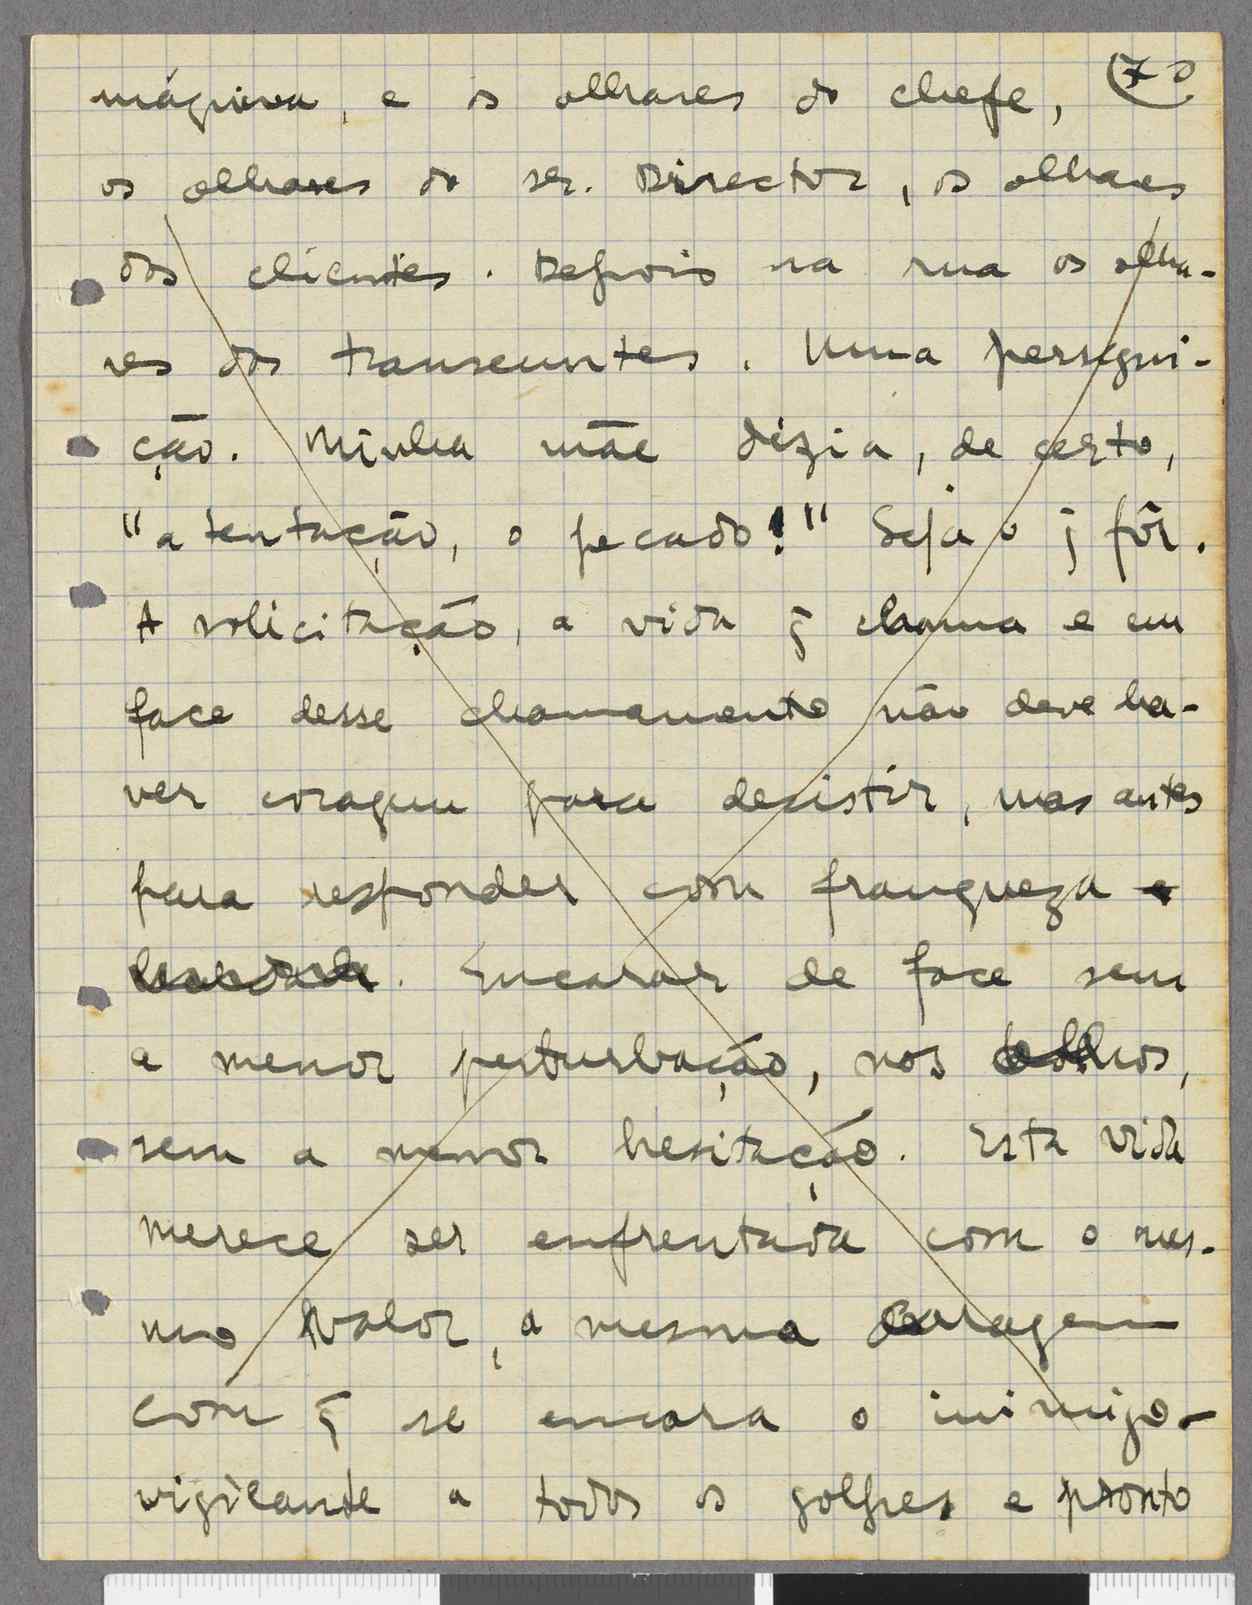 máquina, e os olhares do chefe, 7
os olhares do sr. Director, os olhares
dos clientes. Depois na rua os olha-
res dos transeuntes. Uma persegui-
ção. Minha mãe dizia, de certo,
"a tentação, o pecado!" Seja o q̃ fôr.
A solicitação, a vida q̃ chama e em
face desse chamamento não deve ha-
ver coragem para desistir, mas antes
para responder com franqueza e
. Encarar de face sem
a menor perturbação, nos olhos,
sem a menor hesitação. Esta vida
merece ser enfrentada com o mes-
mo valor, a mesma coragem
com q̃ se encara o inimigo-
vigilante a todos os golpes e pronto